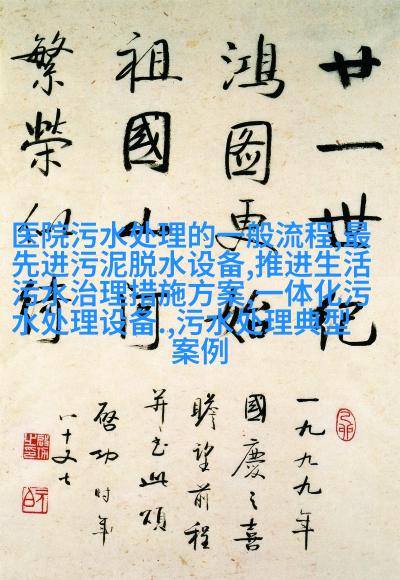 医院污水处理的一般流程,最
先进污泥脱水设备,推进生活
污水治理措施方案,一体化污
水处理设备.,污水处理典型
案例
廿一世纪
鸿图更始
祖國山河
繁榮似
一九九九年
國慶之喜
瞻望前程
并书此颂
啓功时年
八十又七